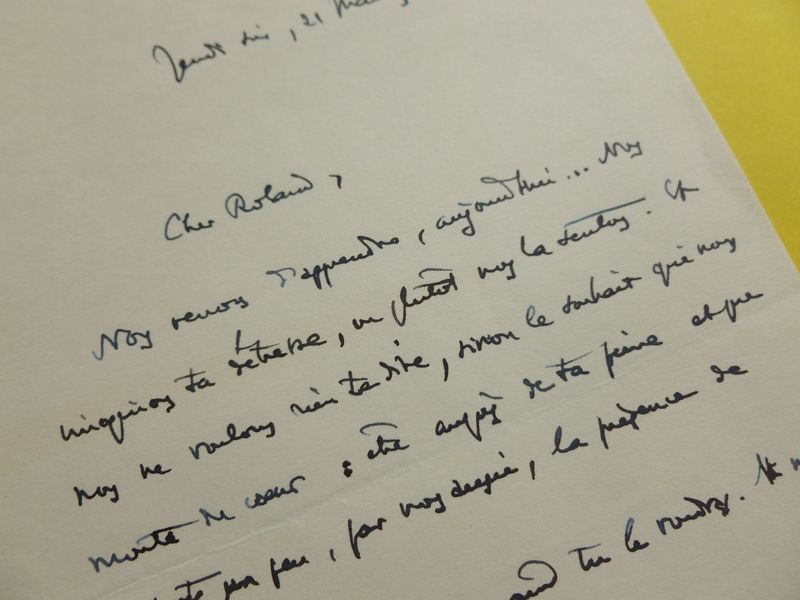 Jeudi soir, 21 mars
Cher Roland,
Nous venons d'apprendre, aujourd'hui... Nous
imaginons ta détresse, ou plutôt nous la sentons. Et
nous ne voulons rien te dire, sinon le souhait que nous
monte du coeur : être auprès de ta peine et que
un peu, par nous, la présence de
quand tu le voudras.